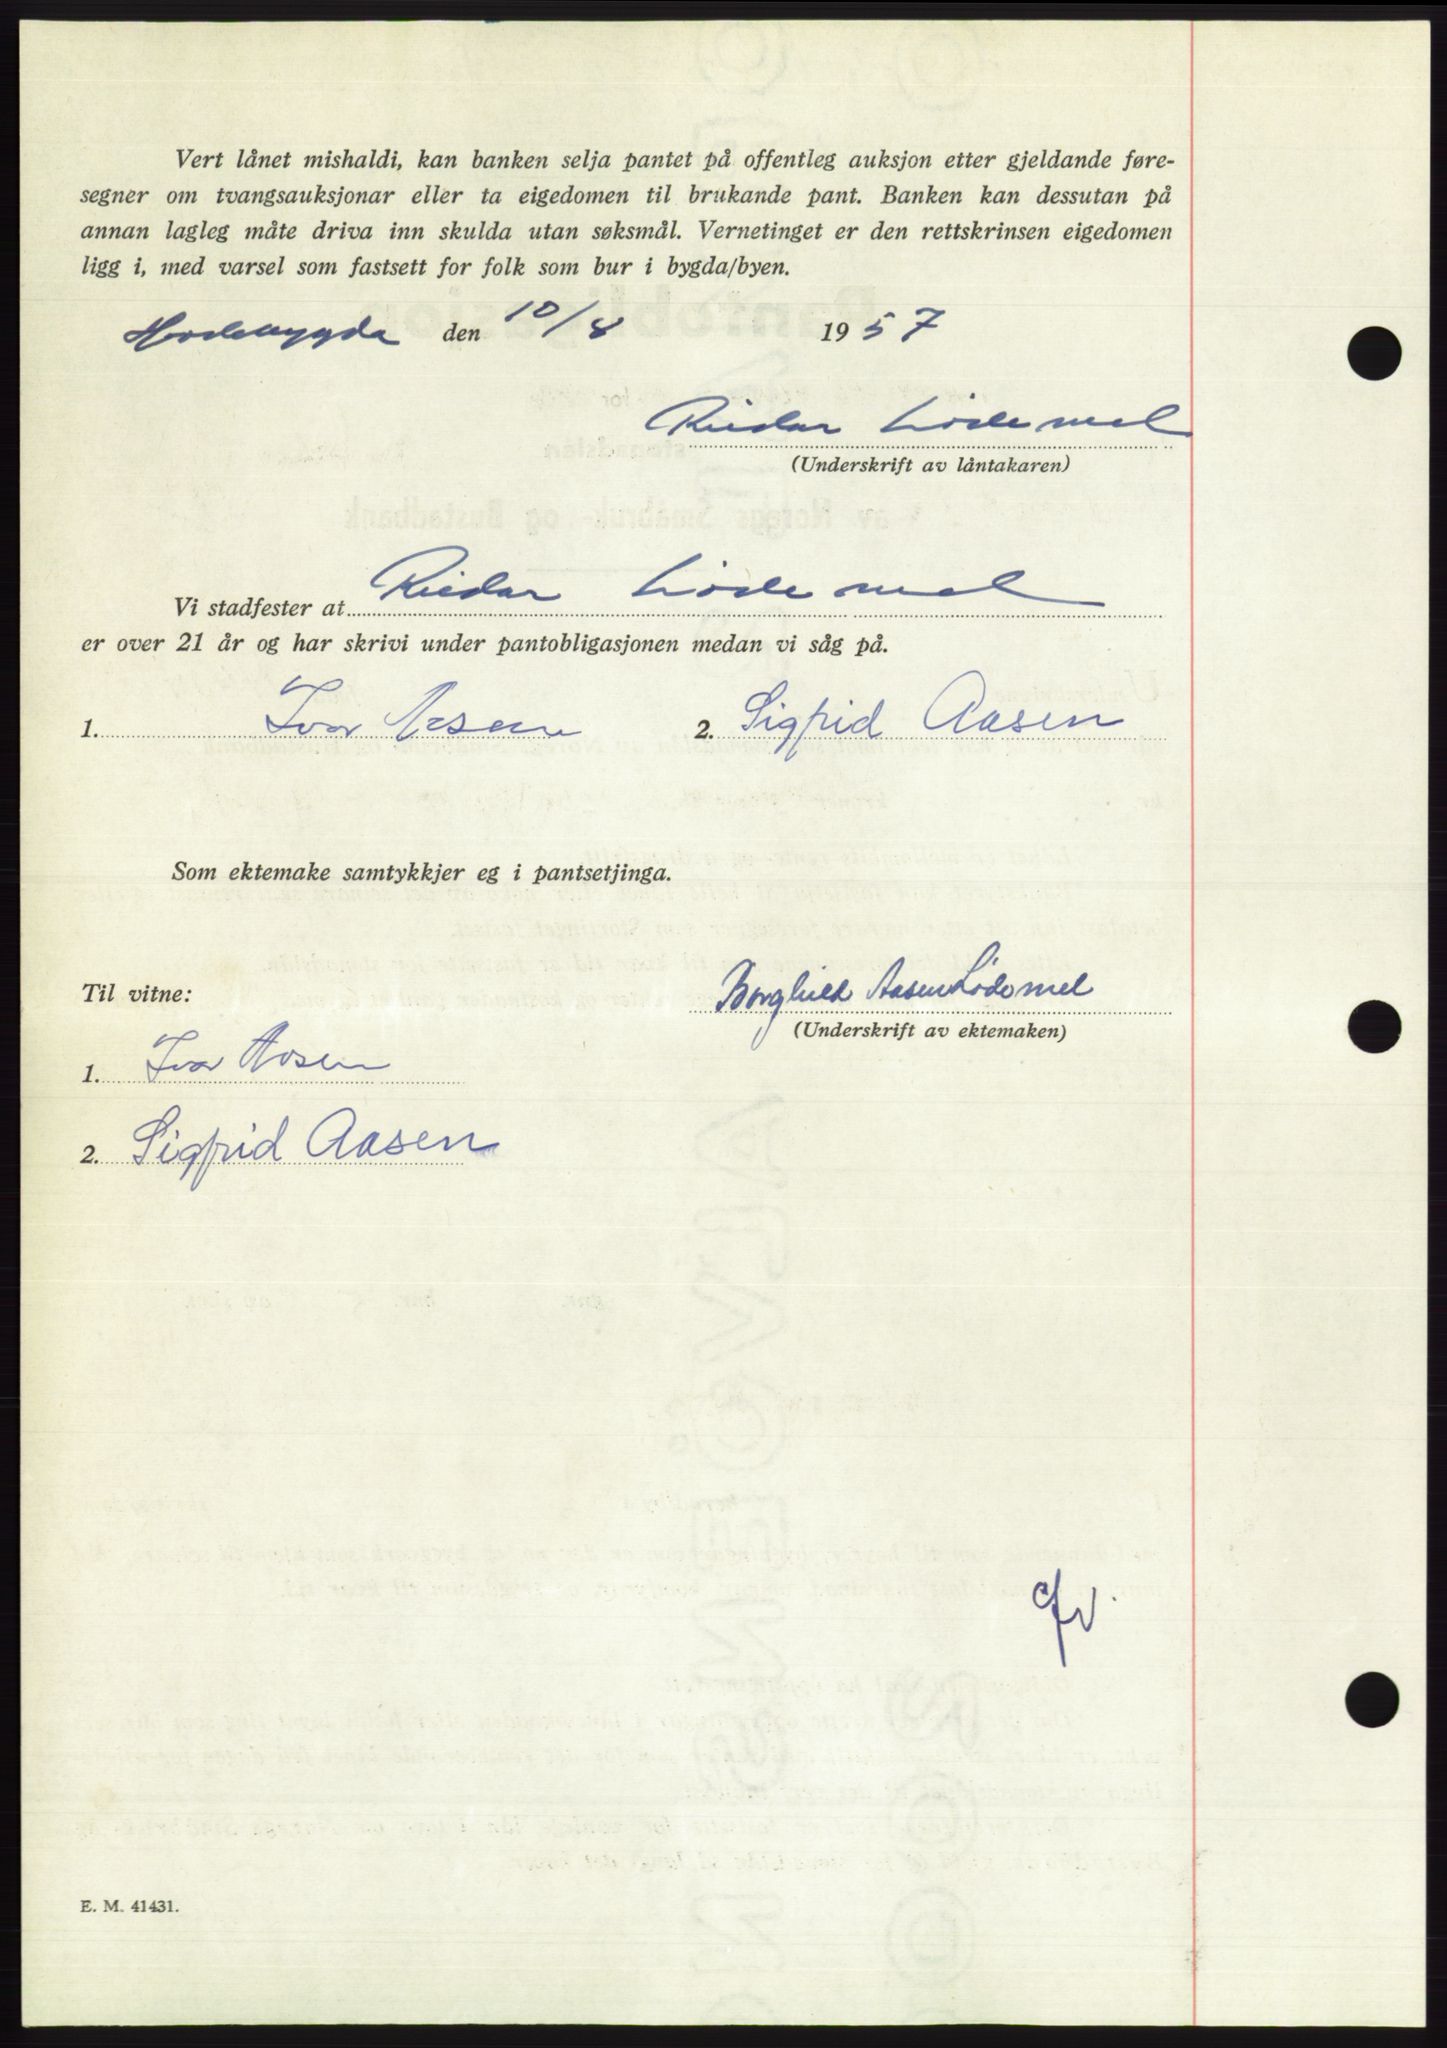 Vert lånet mishaldi, kan banken selja pantet på offentleg auksjon etter gjeldande føre-
segner om tvangsauksjonar eller ta eigedomen til brukande pant. Banken kan dessutan på
annan lagleg måte driva inn skulda utan søksmål. Vernetinget er den rettskrinsen eigedomen
ligg i, med varsel som fastsett for folk som bur i bygda/byen.
den 10/8 1957
Reidar Lødemel
(Underskrift av låntakaren)
Vi stadfester at Reidar Lødemel
er over 21 år og har skrivi under pantobligasjonen medan vi såg på.
1. Ivar Aasen 2. Sigfrid Aasen
Som ektemake samtykkjer eg i pantsetjinga.
Til vitne: Borghild Aasen Lødemel
(Underskrift av ektemaken)
1. Ivar Aasen
2. Sigfrid Aasen
E. M. 41431.